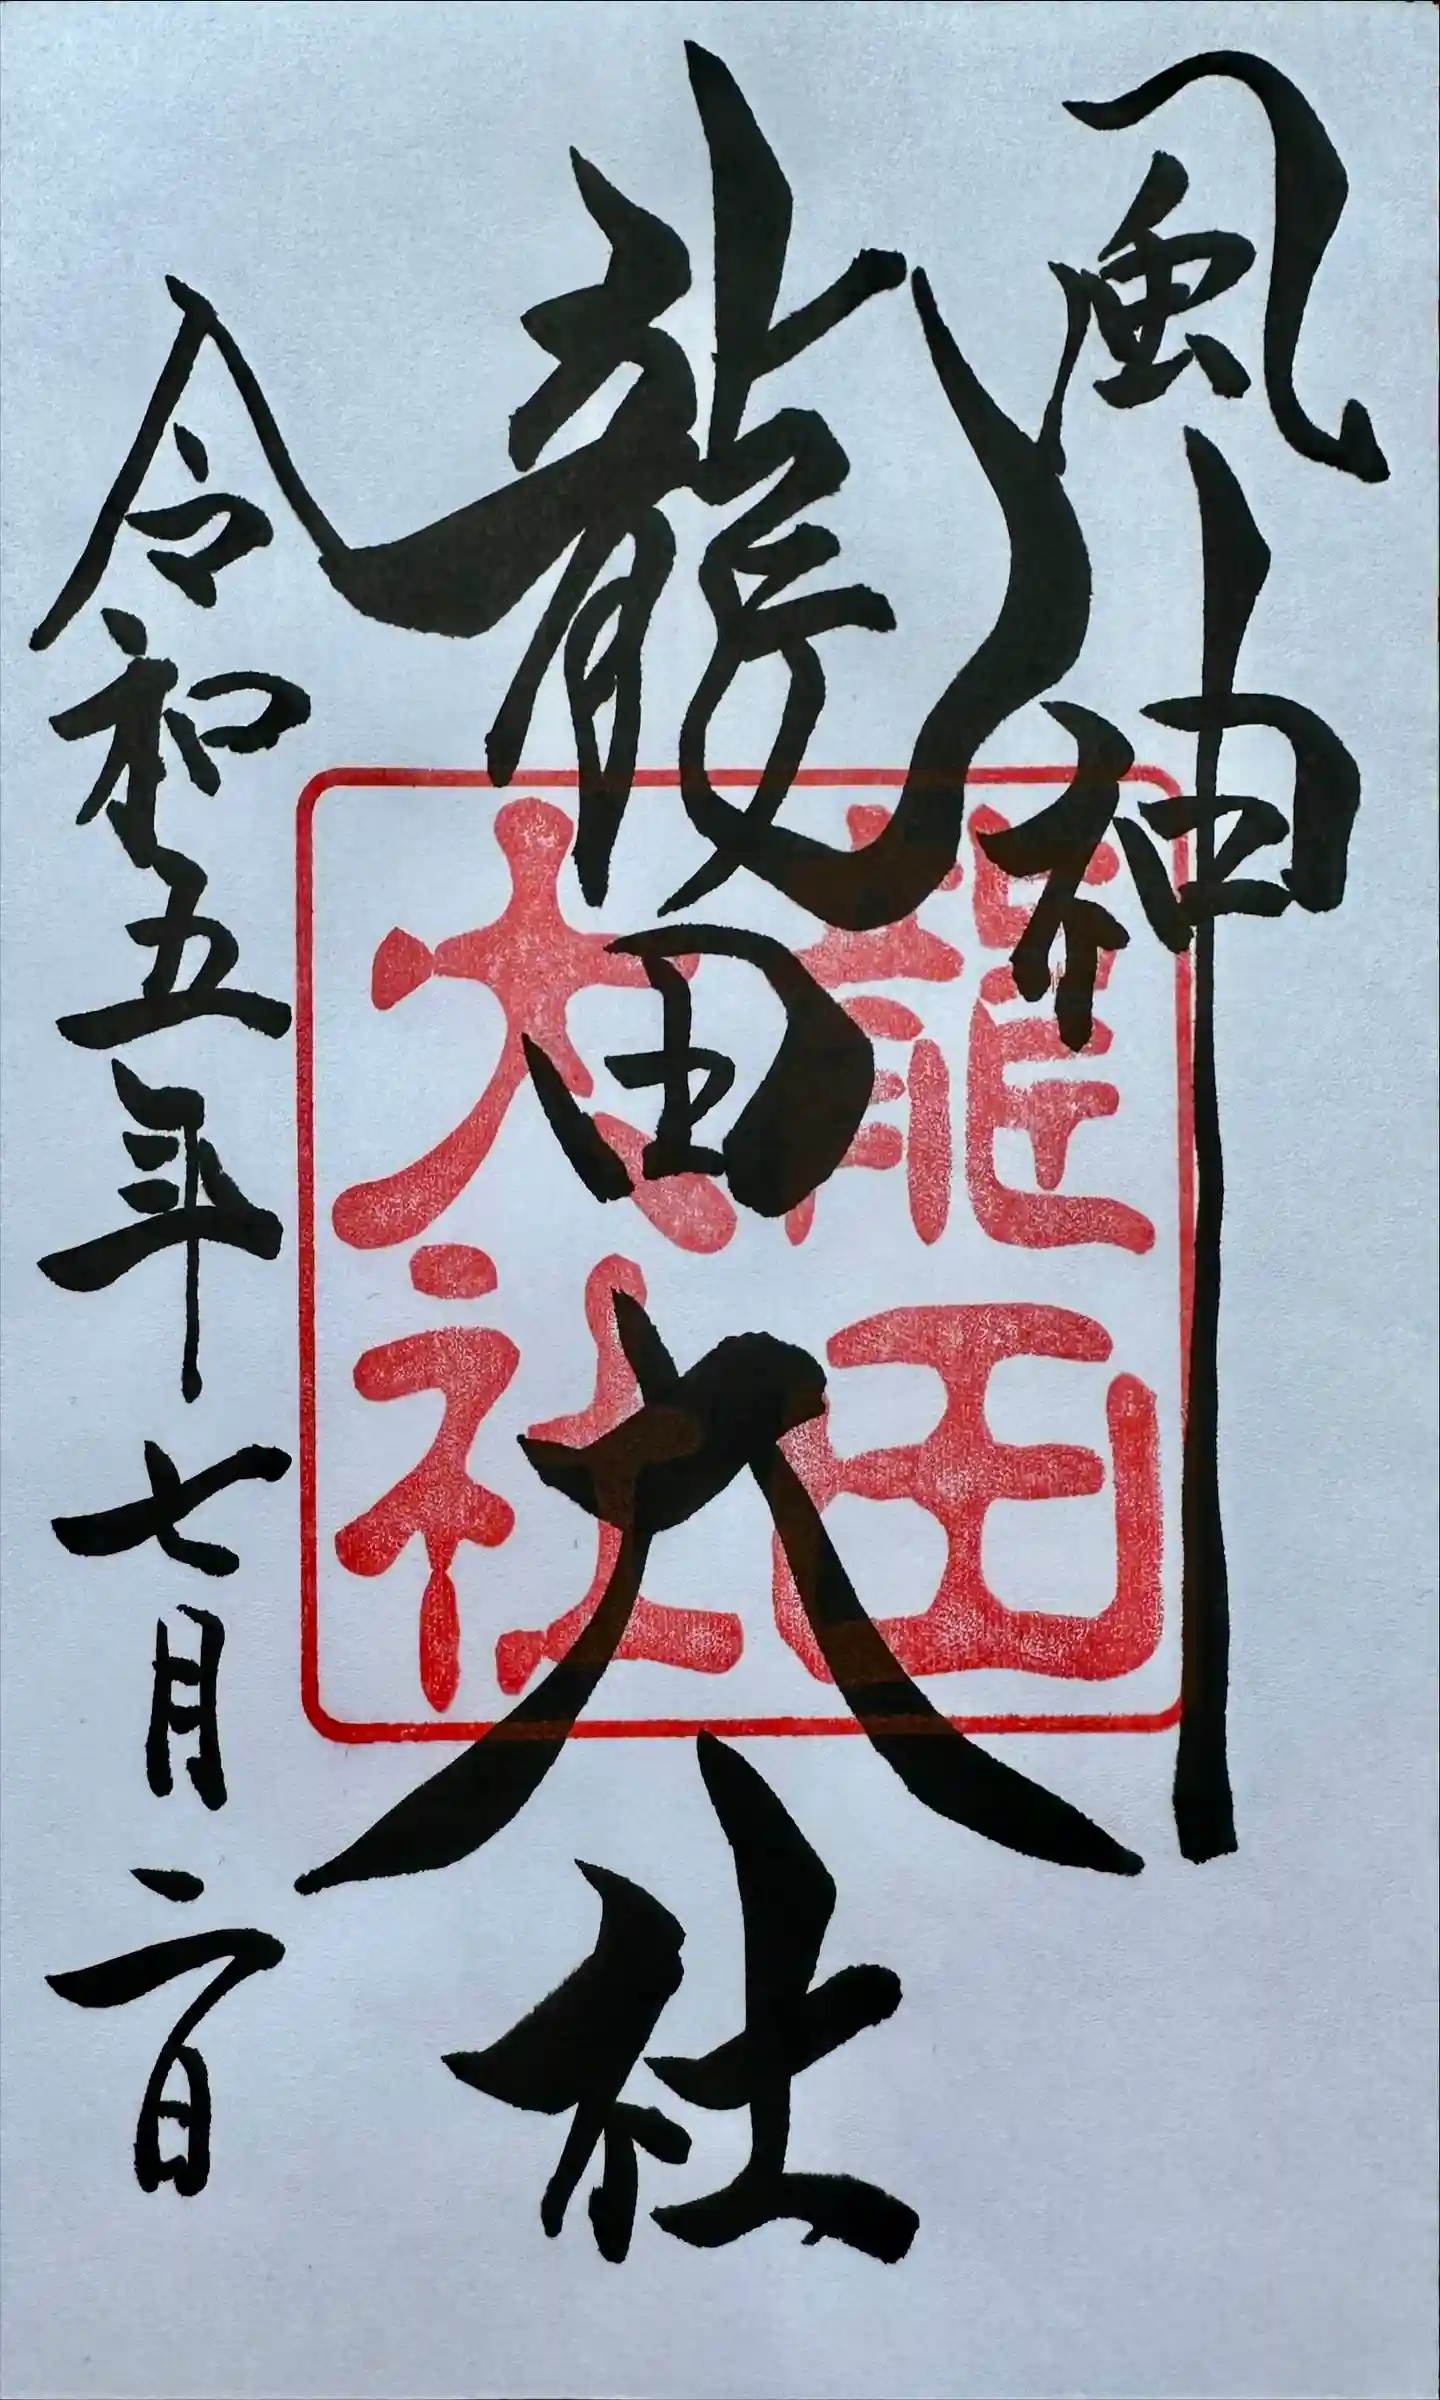 風神
龍田大社
龍田
大社
令和五年七月二日